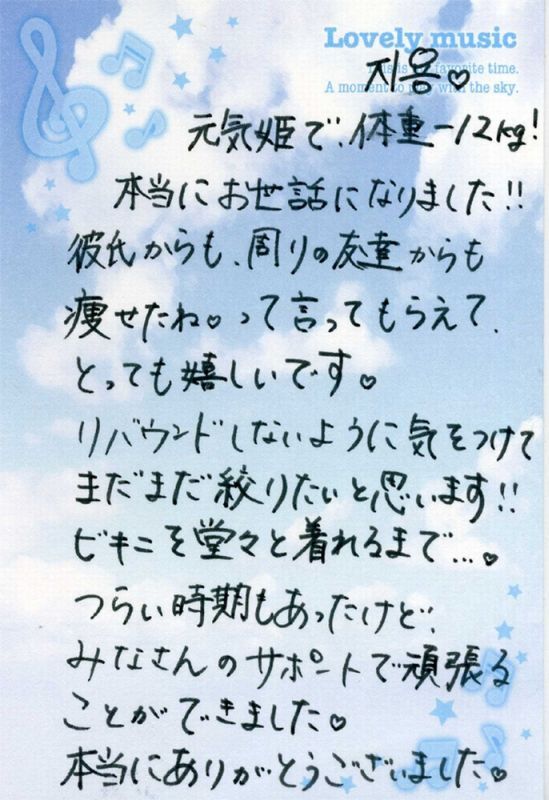 Lovely music
This is my favorite time.
A moment to play with the sky.
지용♡
元気姫で、体重-12kg!
本当にお世話になりました!!
彼氏からも、周りの友達からも
痩せたね。って言ってもらえて、
とっても嬉しいです♡
リバウンドしないように気をつけて
まだまだ絞りたいと思います!!
ビキニを堂々と着れるまで...♡
つらい時期もあったけど、
みなさんのサポートで頑張る
ことができました♡
本当にありがとうございました♡